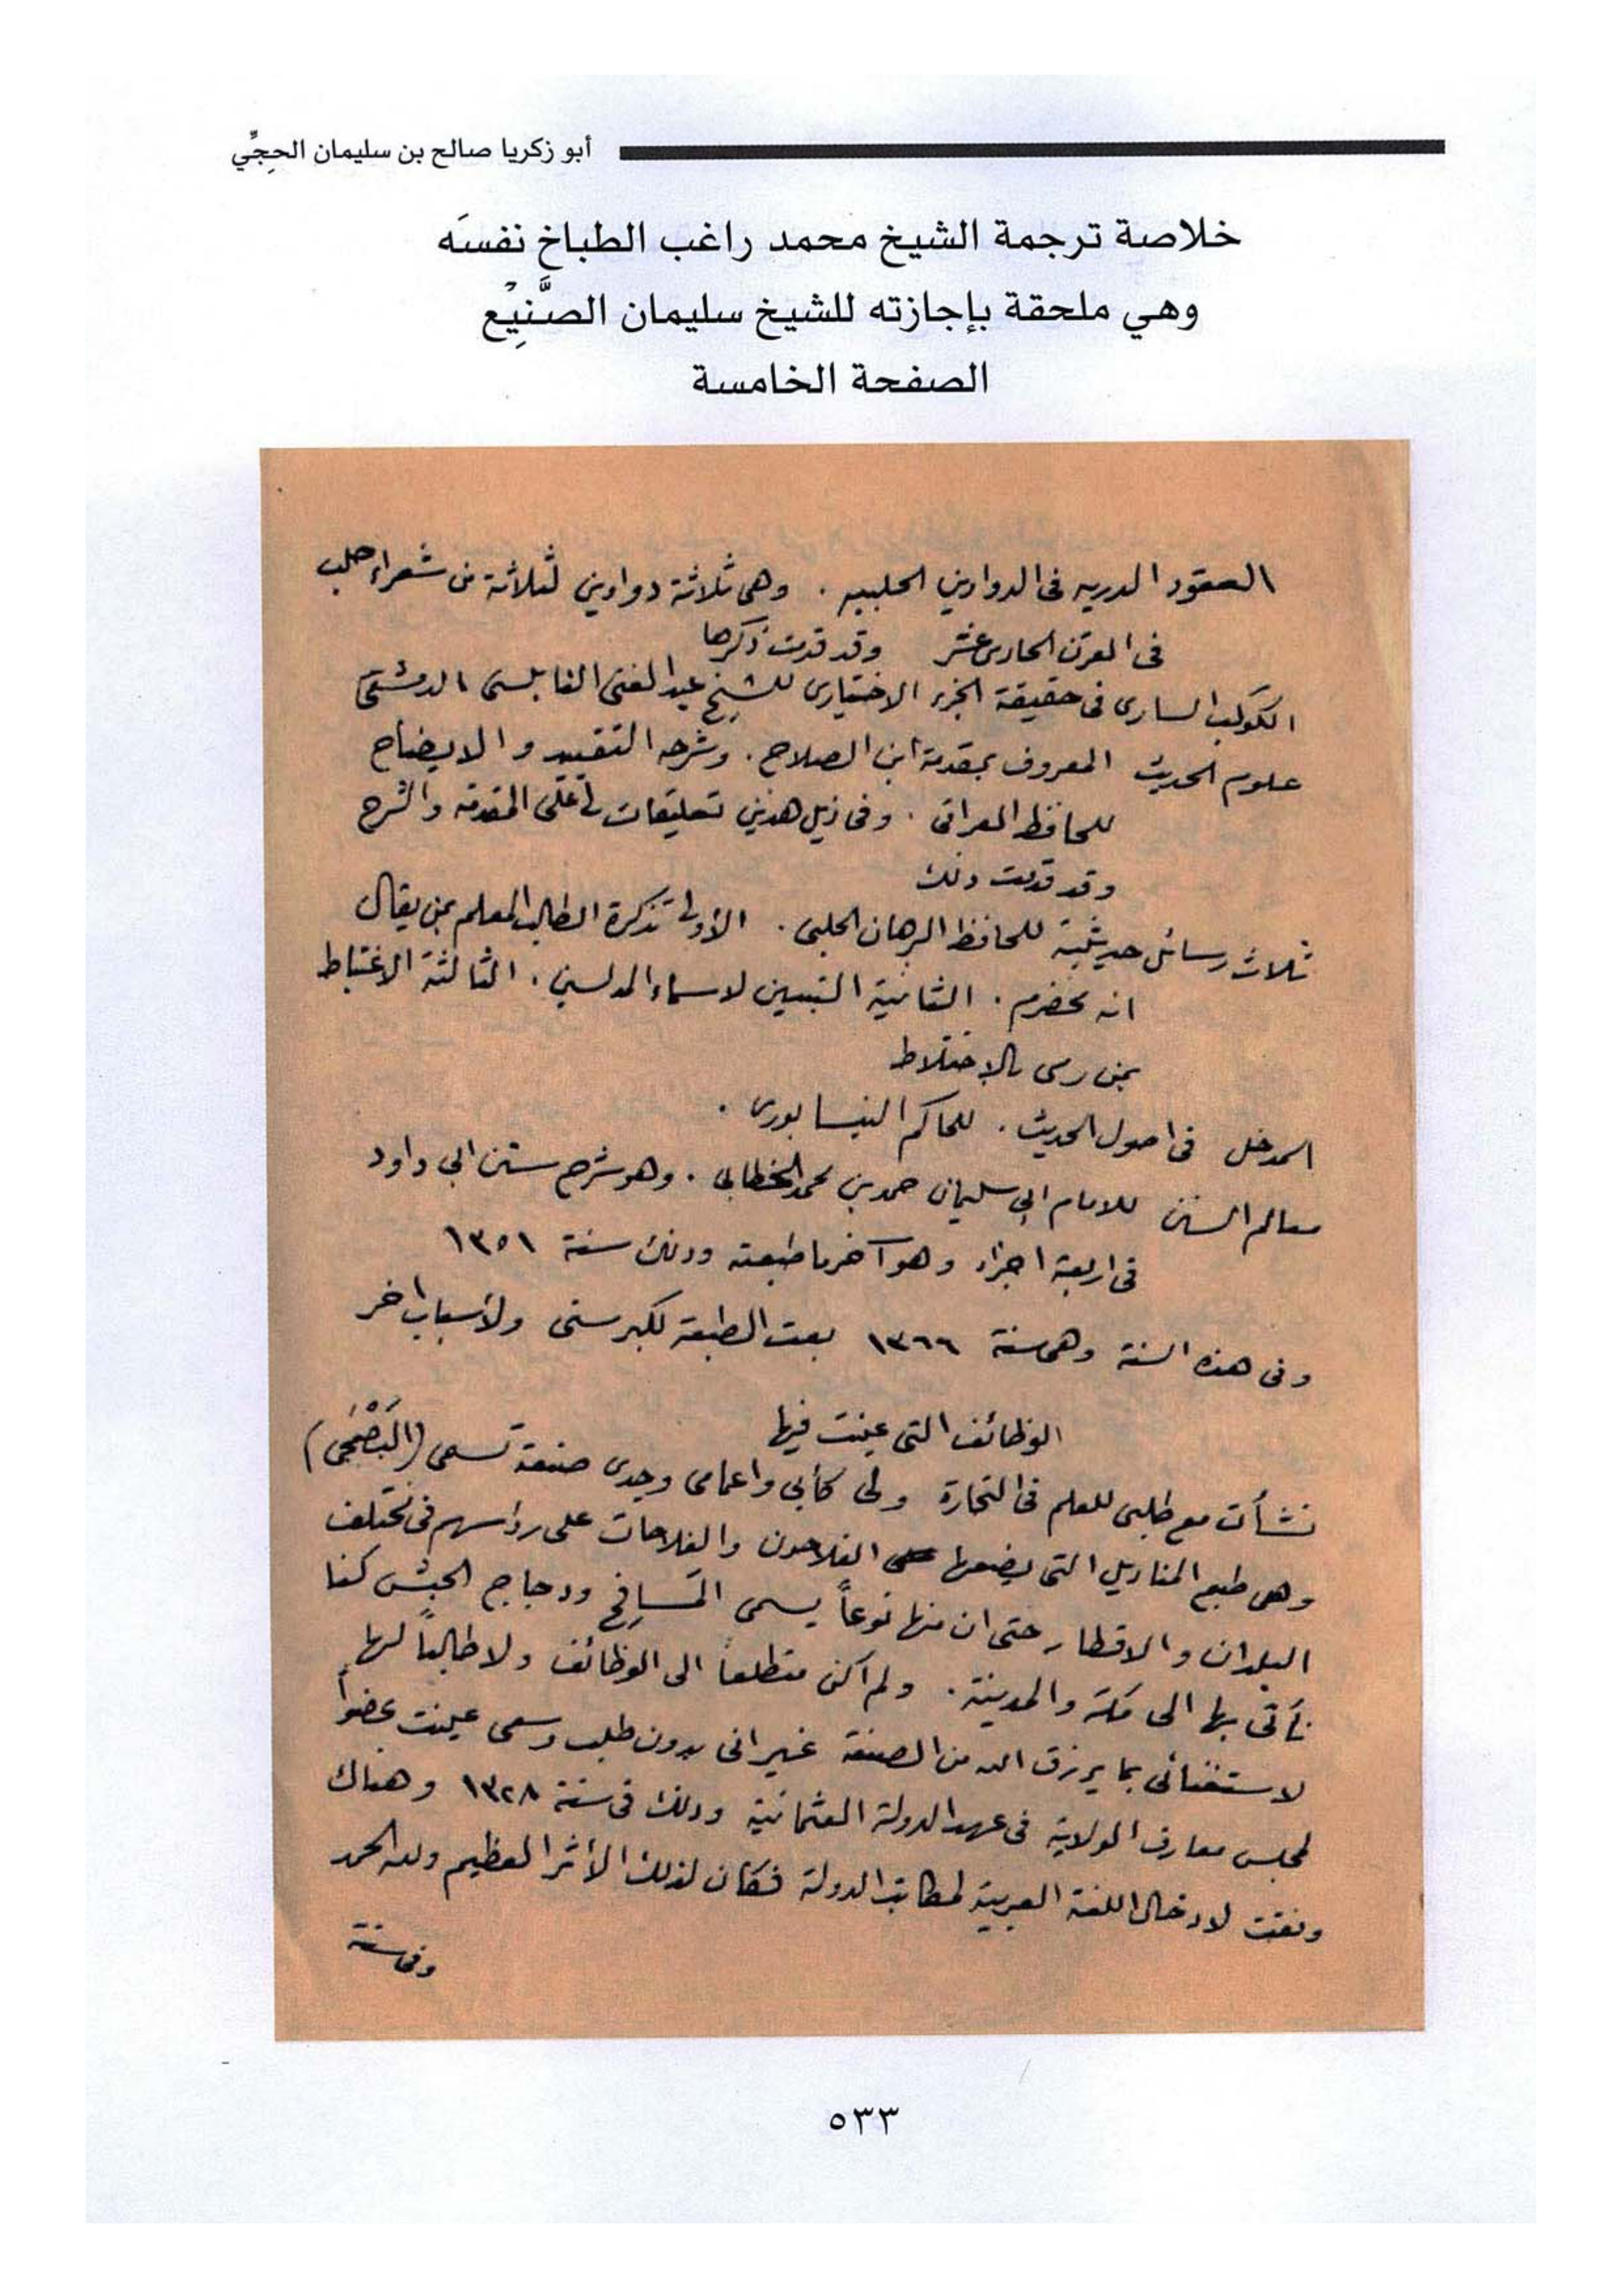 أبو زكريا صالح بن سليمان الحجِّي
خلاصة ترجمة الشيخ محمد راغب الطباخ نفسَه
وهي ملحقة بإجازته للشيخ سليمان الصَّنِيْع
الصفحة الخامسة
العقود الدريه فى الدواوين الحلبيه . وهى ثلاثة دواوين لثلاثة من شعراء حلب
فى القرن الحادى عشر وقد قدمت ذكرها
الكوكب السارى فى حقيقة الجزء الاختيارى للشيخ عبد الغنى النابلسى الدمشقى
علوم الحديث المعروف بمقدمة ابن الصلاح . وشرحه التقييد والايضاح
للحافظ العراقى . وفى ذيل هذين تعليقات لى على المقدمه والشرح
وقد قدمت ذلك
ثلاث رسائل حديثية للحافظ البرهان الحلبى . الأولى تذكرة الطالب المعلم بمن يقال
انه مخضرم . الثانية التبيين لاسماء المدلسين . الثالثة الاغتباط
بمن رمى بالاختلاط
المدخل فى اصول الحديث . للحاكم النيسابورى .
معالم السنن للامام ابي سليمان حمد بن محمد الخطابي . وهو شرح سنن ابي داود
فى اربعة اجزاء وهو آخر ما طبعته وذلك سنة ١٣٥١
وفى هذه السنة وهى سنة ١٣٦٦ بعت المطبعة لكبر سنى ولأسباب اخر
الوظائف التى عينت فيها
نشأت مع طلبى للعلم فى التجارة ولى كأبي واعمامى وجدى صنعة تسمى (البَصْمَجى)
وهى طبع المناديل التى يضعها الفلاحون والفلاحات على رؤاسهم فى مختلف
البلدان والاقطار حتى ان منها نوعاً يسمى ودجاج الحبش كنا
نأتى بها الى مكة والمدينة . ولم اكن متطلعاً الى الوظائف ولا طالباً لها
لاستغنائى بما يرزق الله من الصنعة غير انى بدون طلب وسعى عينت عضواً
لمجلس معارف الولاية فى عهد الدولة العثمانية وذلك فى سنة ١٣٢٨ وهناك
وفقت لادخال اللغة العربية لمكاتب الدولة فكان لذلك الأثر العظيم ولله الحمد
وفى سنة
٥٣٣